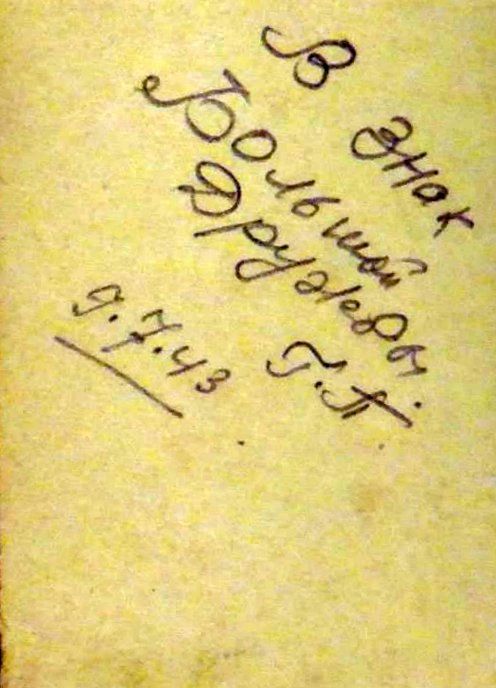 В знак
Большой
Дружбы.
Г.П.
9.7.43